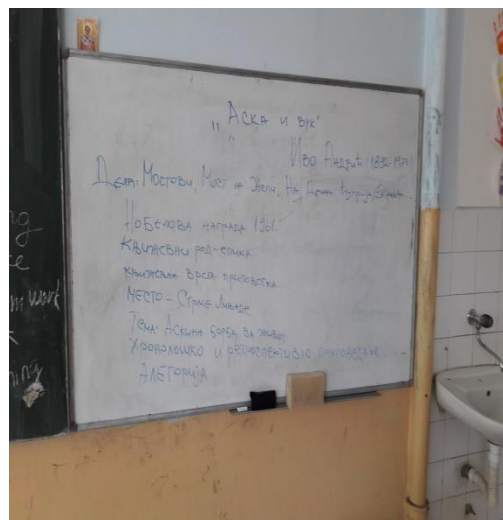 „Аска и вук"
Иво Андрић (1892-1975)
Дела: Мостови, Мост на Жепи, На Дрини ћуприја,
Нобелова награда 1961.
Књижевни род-епика
Књижевна врста приповетка
Место - Стрме Ливаде
Тема: Аскина борба за живот
Хронолошко и ретроспективно приповедање
Алегорија
ng
ce
m work
ning